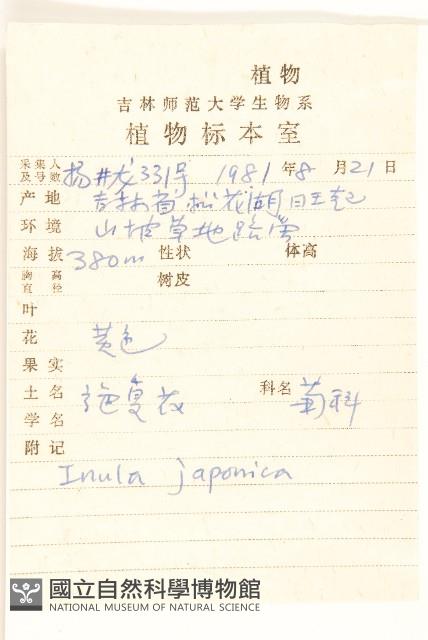 植物
吉林师范大学生物系
植物标本室
采集人及号数 杨井龙 331号 1981年8月21日
产地 吉林省松花湖旺起
环境 山坡草地路旁
海拔 380m 性状 体高
胸高直径 树皮
叶
花 黄色
果实
土名 旋复花 科名 菊科
学名
附记
Inula japonica
國立自然科學博物館
NATIONAL MUSEUM OF NATURAL SCIENCE